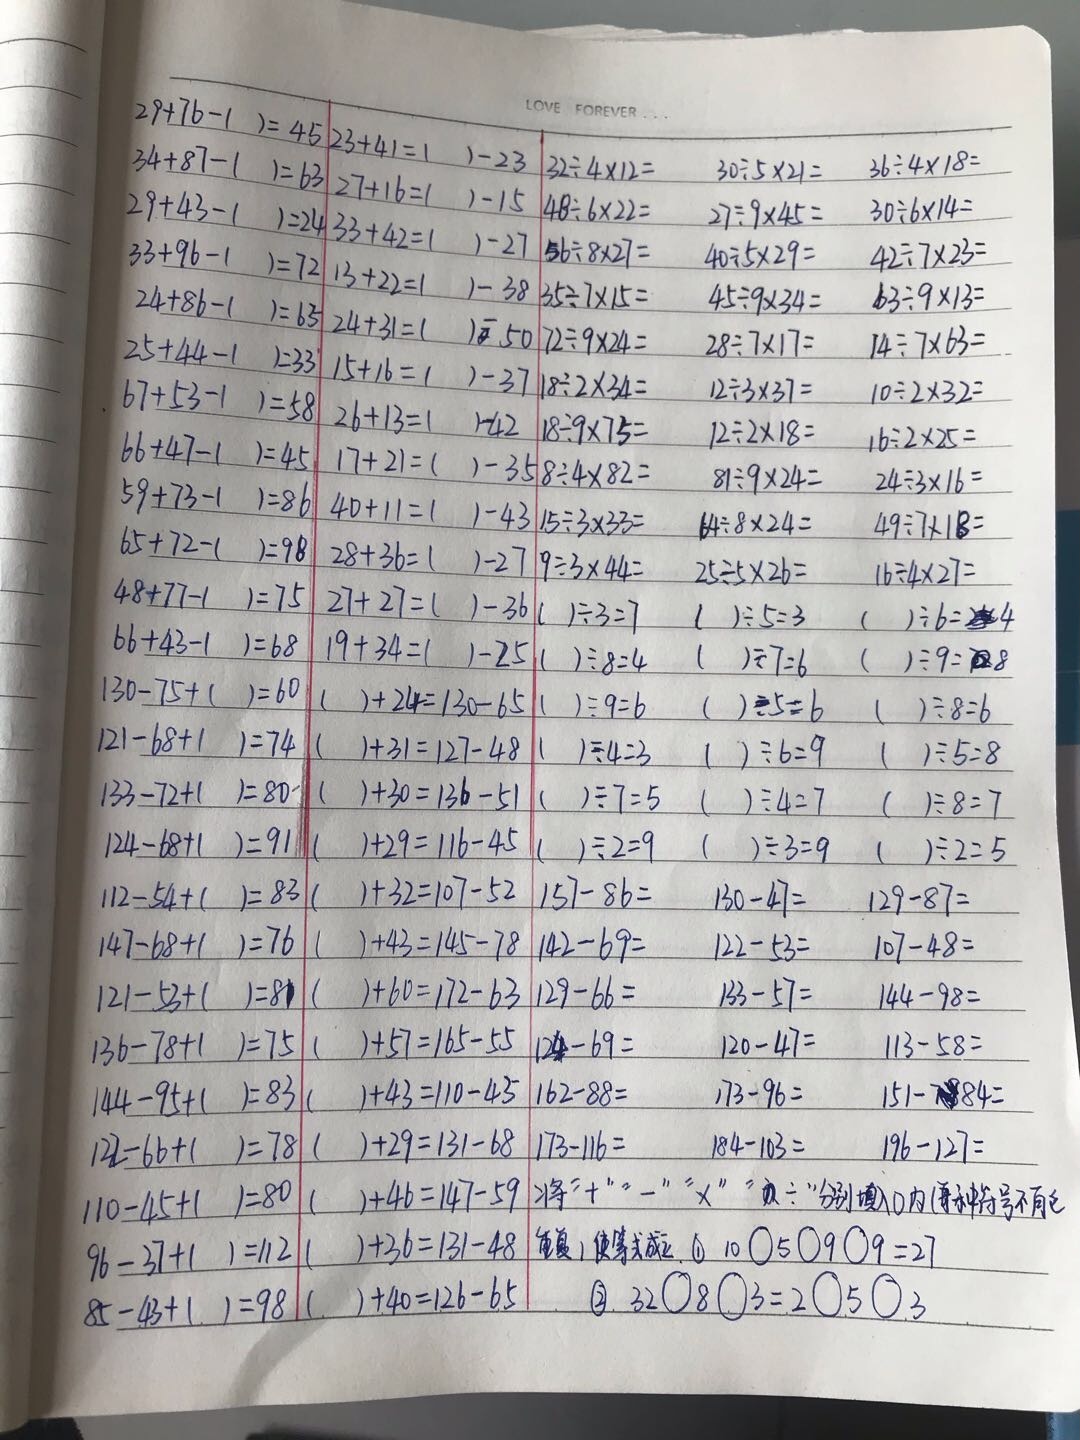 LOVE FOREVER...
29+76-( )=45 23+41=( )-23 32÷4×12= 30÷5×21= 36÷4×18=
34+87-( )=63 27+16=( )-15 48÷6×22= 27÷9×45= 30÷6×14=
29+43-( )=24 33+42=( )-27 56÷8×27= 40÷5×29= 42÷7×23=
33+96-( )=72 13+22=( )-38 35÷7×15= 45÷9×34= 63÷9×13=
24+86-( )=63 24+31=( )-50 72÷9×24= 28÷7×17= 14÷7×63=
25+44-( )=33 15+16=( )-37 18÷2×34= 12÷3×37= 10÷2×32=
67+53-( )=58 26+13=( )-42 18÷9×75= 12÷2×18= 16÷2×25=
66+47-( )=45 17+21=( )-35 8÷4×82= 81÷9×24= 24÷3×16=
59+73-( )=86 40+11=( )-43 15÷3×33= 64÷8×24= 49÷7×18=
65+72-( )=98 28+36=( )-27 9÷3×44= 25÷5×26= 16÷4×27=
48+77-( )=75 27+27=( )-36 ( )÷3=7 ( )÷5=3 ( )÷6=4
66+43-( )=68 19+34=( )-25 ( )÷8=4 ( )÷7=6 ( )÷9=8
130-75+( )=60 ( )+24=130-65 ( )÷9=6 ( )÷5=6 ( )÷8=6
121-68+( )=74 ( )+31=127-48 ( )÷4=3 ( )÷6=9 ( )÷5=8
133-72+( )=80 ( )+30=136-51 ( )÷7=5 ( )÷4=7 ( )÷8=7
124-68+( )=91 ( )+29=116-45 ( )÷2=9 ( )÷3=9 ( )÷2=5
112-54+( )=83 ( )+32=107-52 157-86= 130-47= 129-87=
147-68+( )=76 ( )+43=145-78 142-69= 122-53= 107-48=
121-53+( )=81 ( )+60=172-63 129-66= 133-57= 144-98=
136-78+( )=75 ( )+57=165-55 124-69= 120-47= 113-58=
144-95+( )=83 ( )+43=110-45 162-88= 173-96= 151-84=
122-66+( )=78 ( )+29=131-68 173-116= 184-103= 196-127=
110-45+( )=80 ( )+46=147-59 将"+""-""×""÷"分别填入○内(每种符号不可以
96-37+( )=112 ( )+36=131-48 重复)使等式成立 ① 10○5○9○9=27
85-43+( )=98 ( )+40=126-65 ② 32○8○3=2○5○3